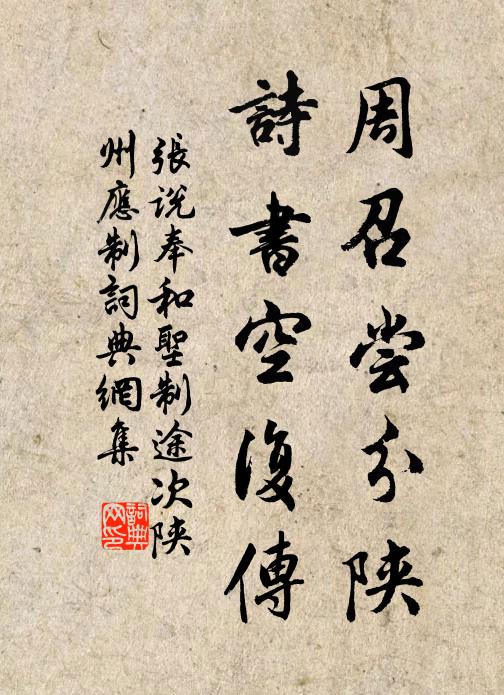 周召尝分陕
詩書空復傳
張说奉和聖制途次陕
州應制詞典網集
詞典網印